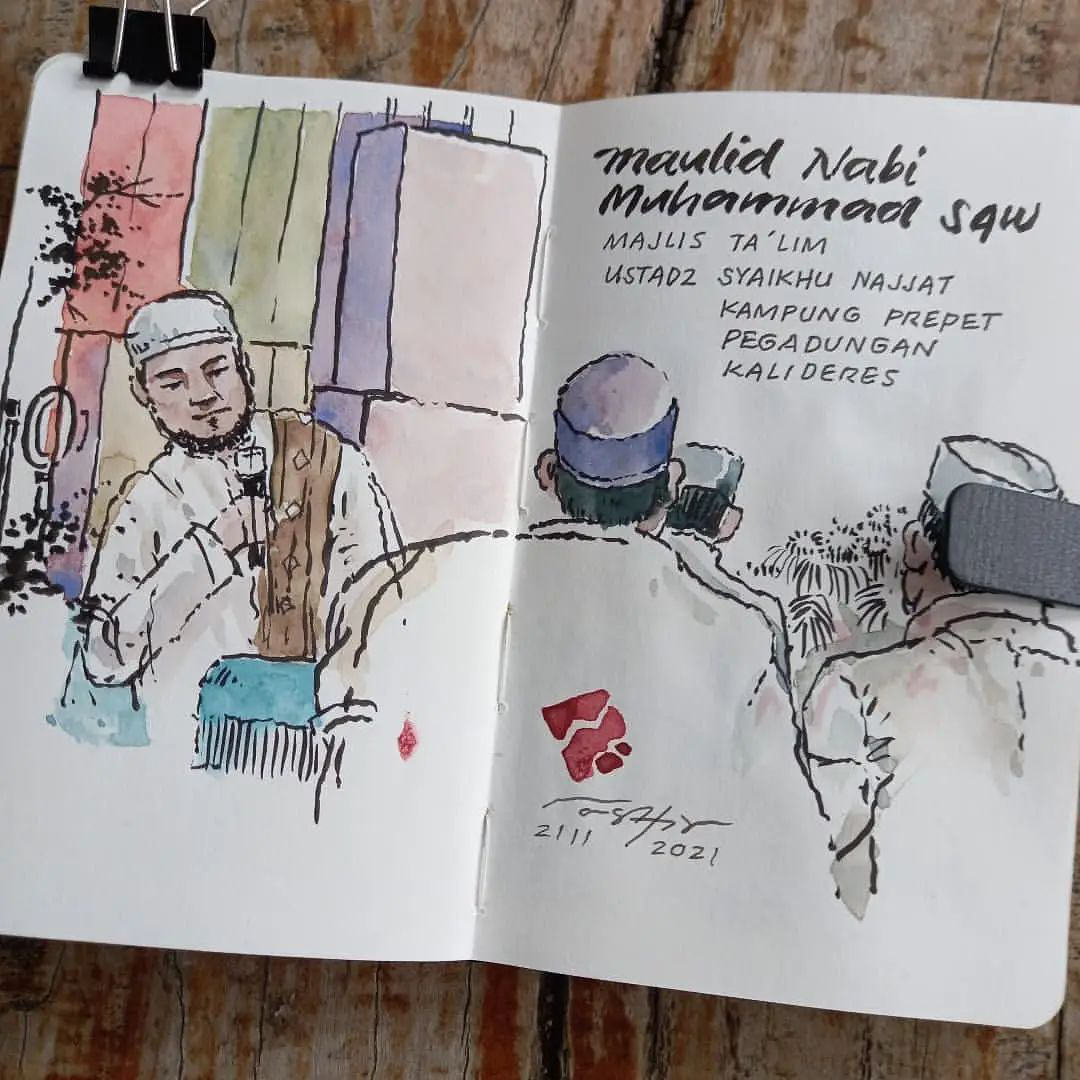 maulid Nabi
Muhammad SAW
MAJLIS TA'LIM
USTADZ SYAIKHU NAJJAT
KAMPUNG PREPET
PEGADUNGAN
KALIDERES
2111 2021